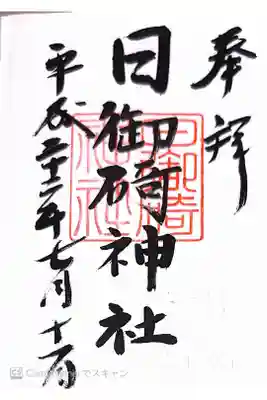 奉拝
日御碕神社
平成二十二年七月十一日
日御碕神社
CS CamScannerでスキャン